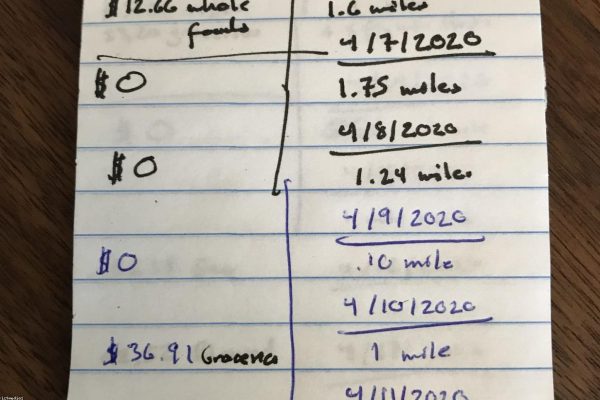 $12.66 whole 1.6 miles
foods
4/7/2020
$0 1.75 miles
4/8/2020
$0 1.24 miles
4/9/2020
$0 .10 mile
4/10/2020
$36.91 Groceries 1 mile
4/11/2020